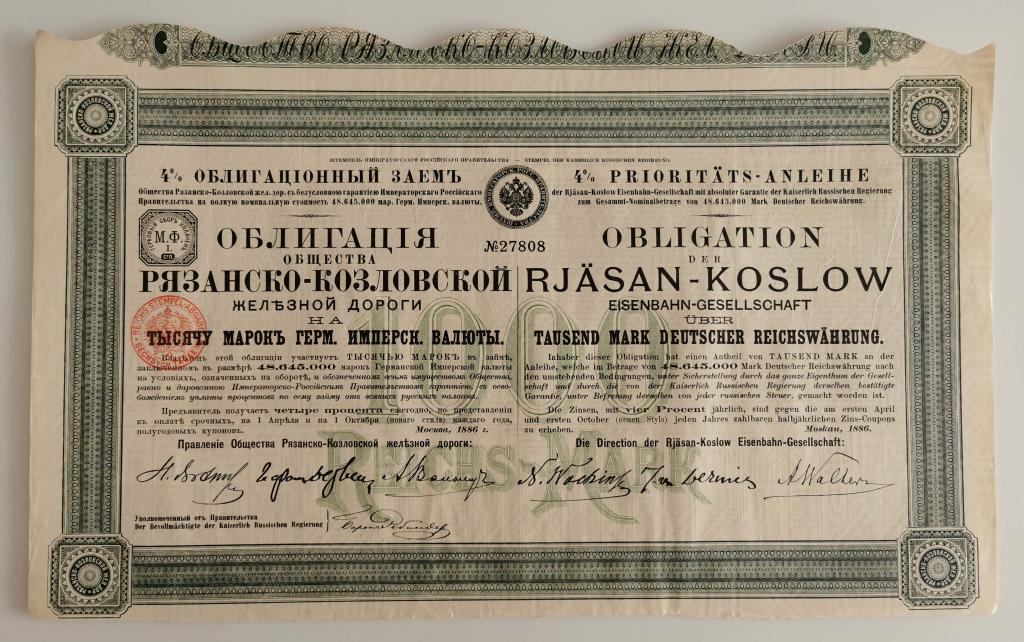 ШТЕМПЕЛЬ ИМПЕРАТОРСКАГО РОССІЙСКАГО ПРАВИТЕЛЬСТВА — STEMPEL DER KAISERLICH RUSSISCHEN REGIERUNG
4% ОБЛИГАЦІОННЫЙ ЗАЕМЪ
Общества Рязанско-Козловской жел. дор. съ безусловною гарантіею Императорскаго Россійскаго
Правительства на полную номинальную стоимость 48.645.000 мар. Герм. Имперск. валюты.
4% PRIORITÄTS-ANLEIHE
der Rjäsan-Koslow Eisenbahn-Gesellschaft mit absoluter Garantie der Kaiserlich Russischen Regierung
zum Gesammt-Nominalbetrage von 48.645.000 Mark Deutscher Reichswährung.
М.Ф.
I.
ОБЛИГАЦІЯ
ОБЩЕСТВА
РЯЗАНСКО-КОЗЛОВСКОЙ
ЖЕЛѢЗНОЙ ДОРОГИ
НА
ТЫСЯЧУ МАРОКЪ ГЕРМ. ИМПЕРСК. ВАЛЮТЫ.
№27808
OBLIGATION
DER
RJÄSAN-KOSLOW
EISENBAHN-GESELLSCHAFT
ÜBER
TAUSEND MARK DEUTSCHER REICHSWÄHRUNG.
1000
REICHS-MARK
Владѣлецъ этой облигаціи участвуетъ ТЫСЯЧЬЮ МАРОКЪ въ займѣ,
заключенномъ въ размѣрѣ 48.645.000 марокъ Германской Имперской валюты
на условіяхъ, означенныхъ на оборотѣ, и обезпеченномъ всѣмъ имуществомъ Общества,
равно и дарованною Императорско-Россійскимъ Правительствомъ гарантіею, съ осво-
божденіемъ уплаты процентовъ по сему займу отъ всякихъ русскихъ налоговъ.
Предъявитель получаетъ четыре процента ежегодно, по представленіи
къ оплатѣ срочныхъ, на 1 Апрѣля и на 1 Октября (новаго стиля) каждаго года,
полугодовыхъ купоновъ.
Москва, 1886 г.
Правленіе Общества Рязанско-Козловской желѣзной дороги:
Inhaber dieser Obligation hat einen Antheil von TAUSEND MARK an der
Anleihe, welche im Betrage von 48.645.000 Mark Deutscher Reichswährung nach
den umstehenden Bedingungen, unter Sicherstellung durch das ganze Eigenthum der Gesell-
schaft und durch die von der Kaiserlich Russischen Regierung derselben bestätigte
Garantie, unter Befreiung derselben von jeder russischen Steuer, gemacht worden ist.
Die Zinsen, mit vier Procent jährlich, sind gegen die am ersten April
und ersten October (neuen Styls) jeden Jahres zahlbaren halbjährlichen Zins-Coupons
zu erheben.
Moskau, 1886.
Die Direction der Rjäsan-Koslow Eisenbahn-Gesellschaft:
Уполномоченный отъ Правительства
Der Bevollmächtigte der Kaiserlich Russischen Regierung